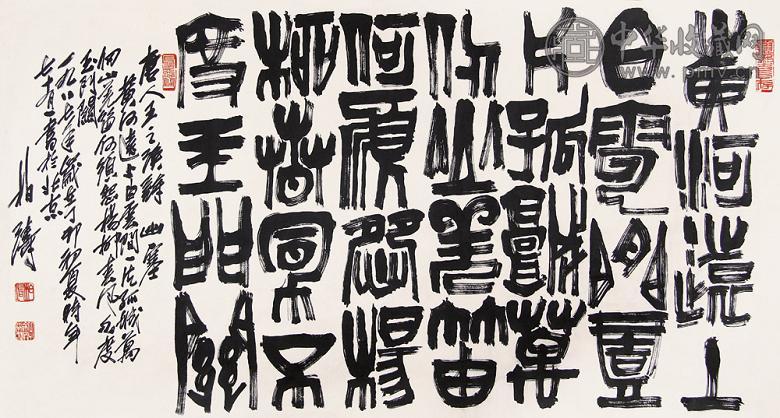 黄河遠上
白雲間壹
片孤城萬
仞山羌笛
何須怨楊
柳春風不
度玉門關
唐人王之渙詩出塞
黄河遠上白雲間一片孤城萬
仞山羌笛何須怨楊柳春風不度
玉門關
一九八七年歲丁卯初夏時年
七十有一書於北京
中华收藏网